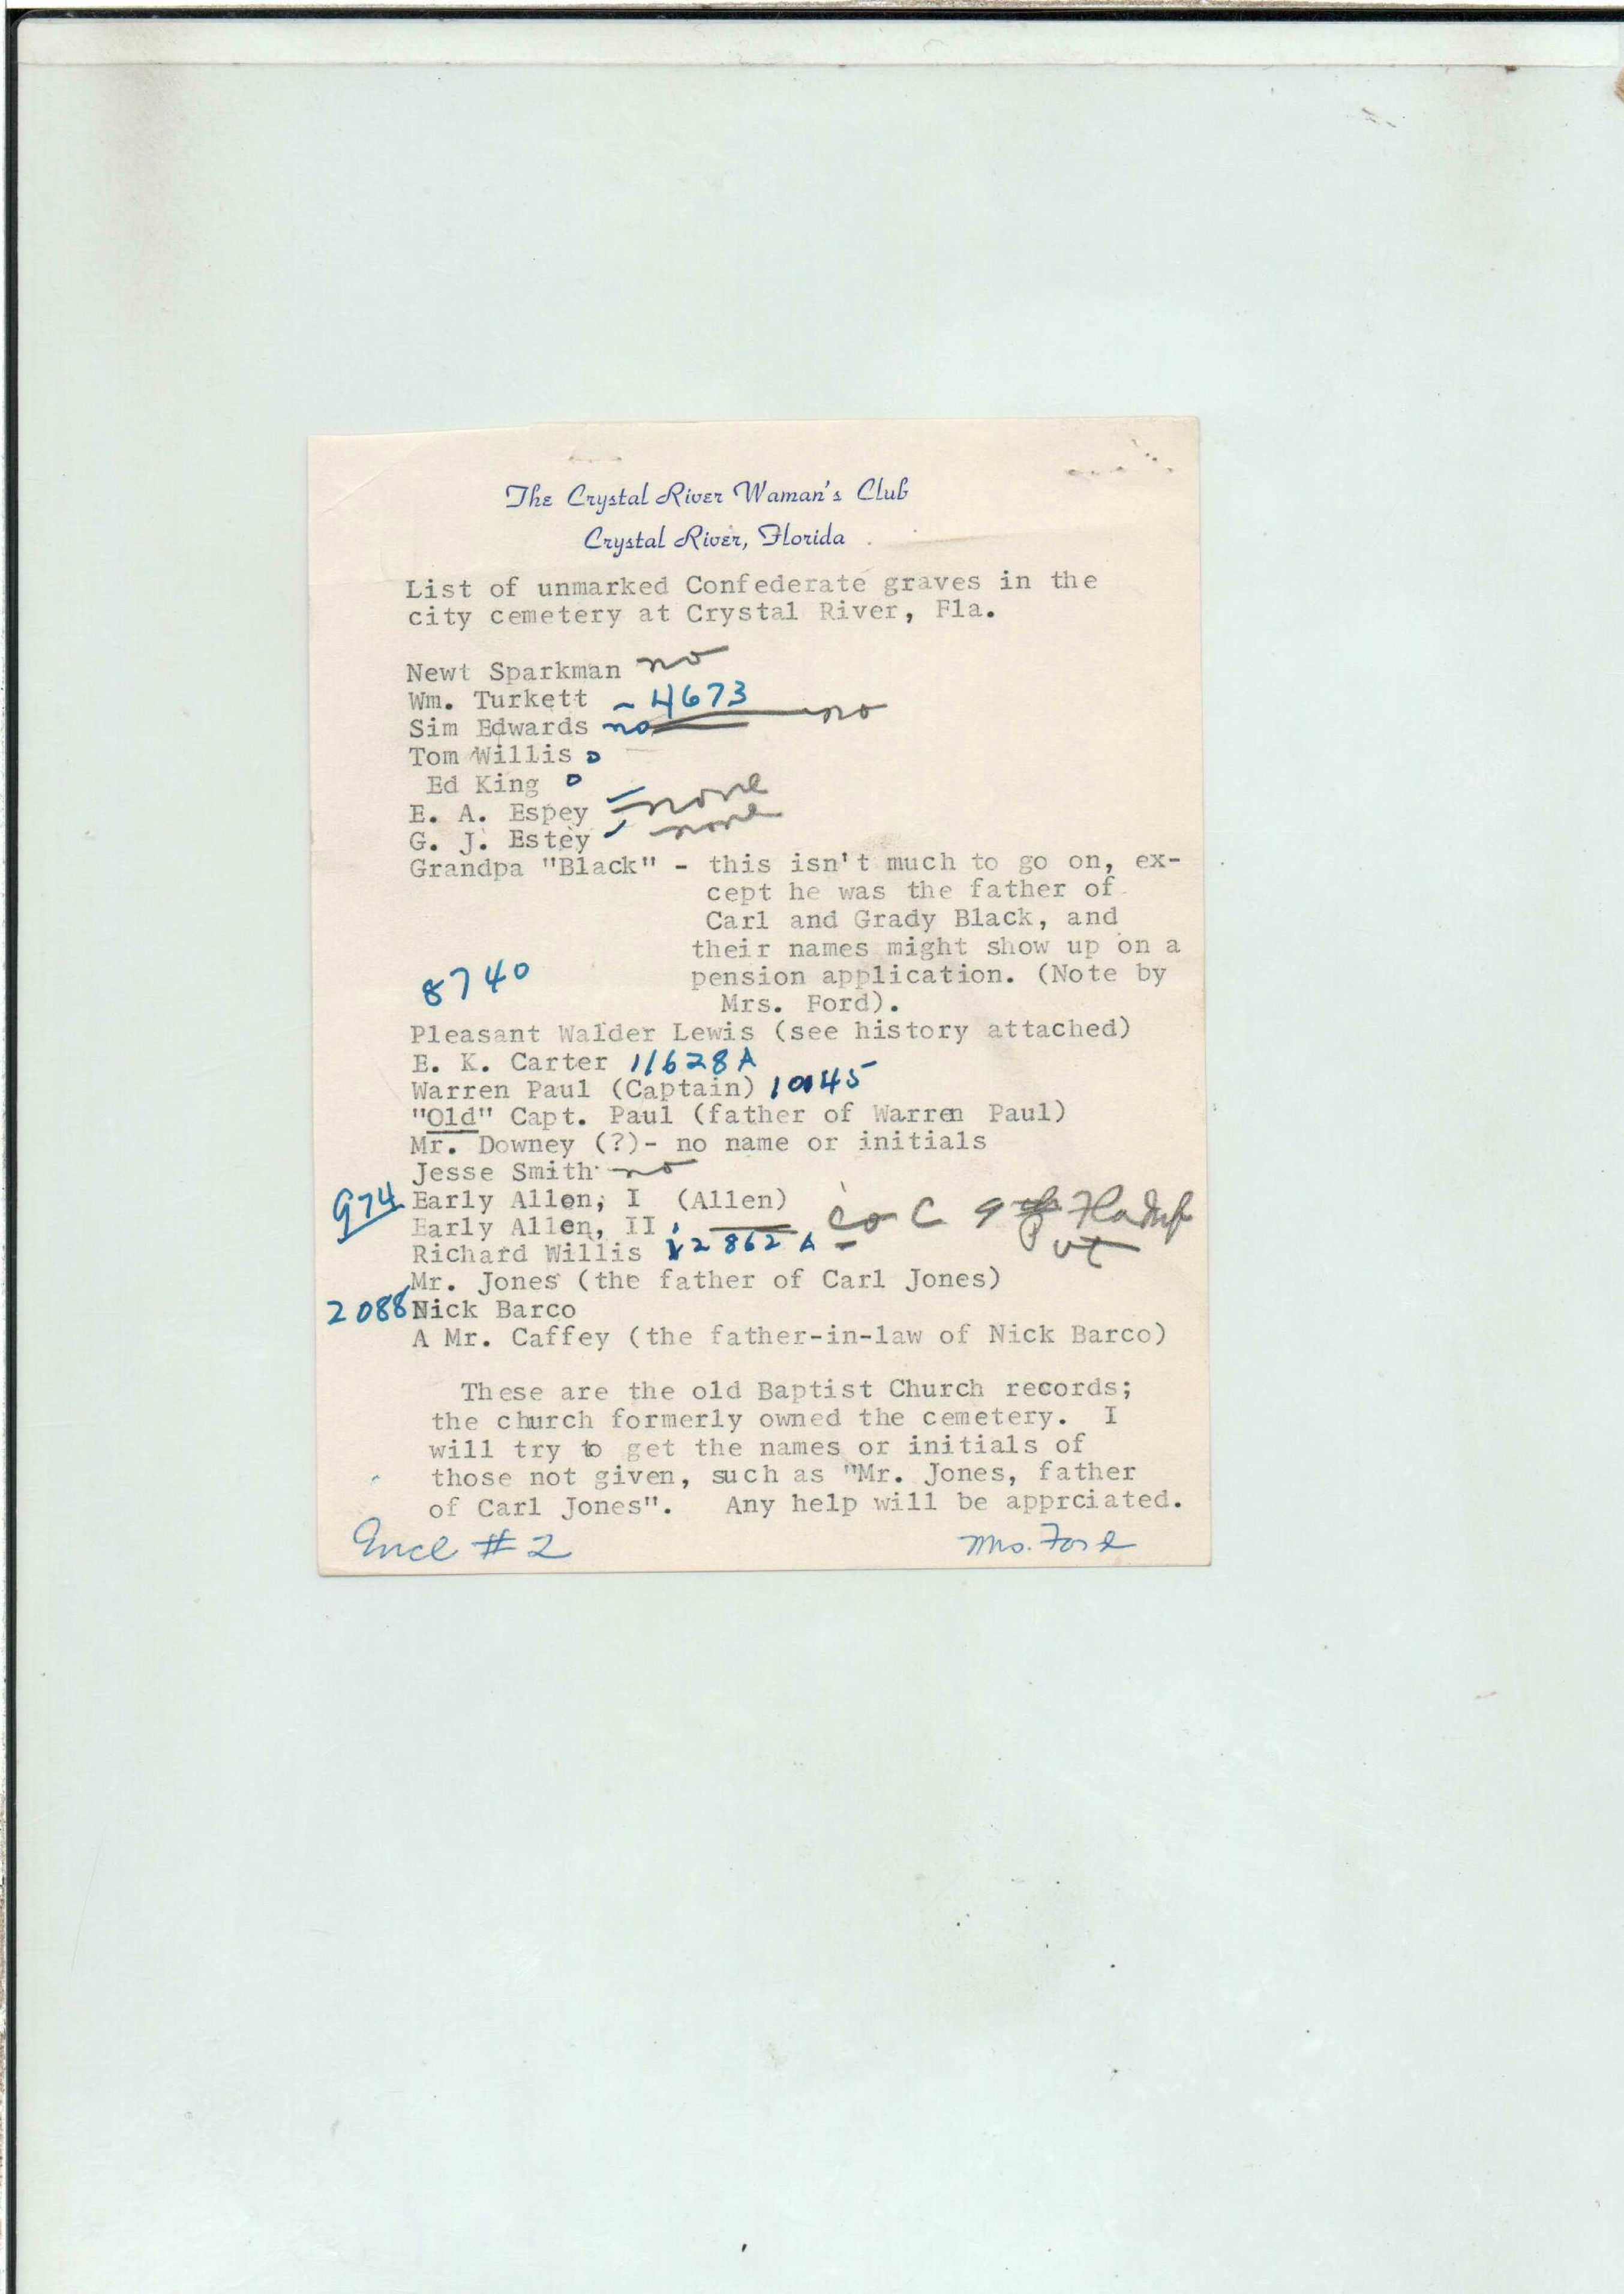 The Crystal River Waman's Club
Crystal River, Florida
List of unmarked Confederate graves in the
city cemetery at Crystal River, Fla.
Newt Sparkman no
Wm. Turkett - 4673
Sim Edwards no no
Tom Willis o
Ed King o
E. A. Espey = none
G. J. Estey none
Grandpa "Black" - this isn't much to go on, ex-
cept he was the father of
Carl and Grady Black, and
their names might show up on a
pension application. (Note by
8740
Mrs. Ford).
Pleasant Walder Lewis (see history attached)
E. K. Carter 11628A
Warren Paul (Captain) 10145
"Old" Capt. Paul (father of Warren Paul)
Mr. Downey (?)- no name or initials
Jesse Smith no
974 Early Allen, I (Allen)
Early Allen, II Co C 9th Fla Inf
Pvt
Richard Willis 12862 A
Mr. Jones (the father of Carl Jones)
2088 Nick Barco
A Mr. Caffey (the father-in-law of Nick Barco)
These are the old Baptist Church records;
the church formerly owned the cemetery. I
will try to get the names or initials of
those not given, such as "Mr. Jones, father
of Carl Jones". Any help will be apprciated.
Encl #2 Mrs. Ford